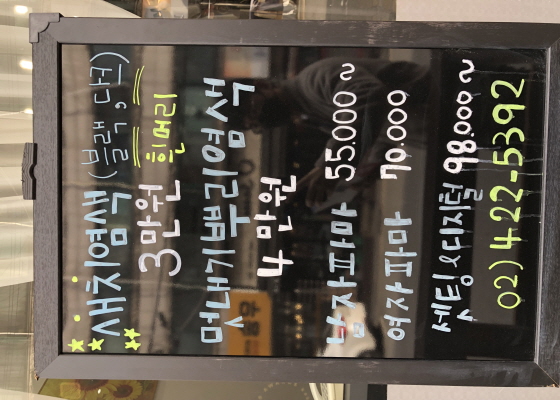 새치염색 (블랙, 다크)
3만원 흰머리
멋내기뿌리염색
4만원
남자파마 55.000~
여자파마 70.000
셋팅&디지털 98.000~
02) 422-5392